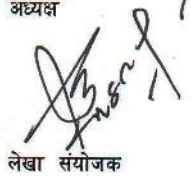 अध्यक्ष
लेखा संयोजक